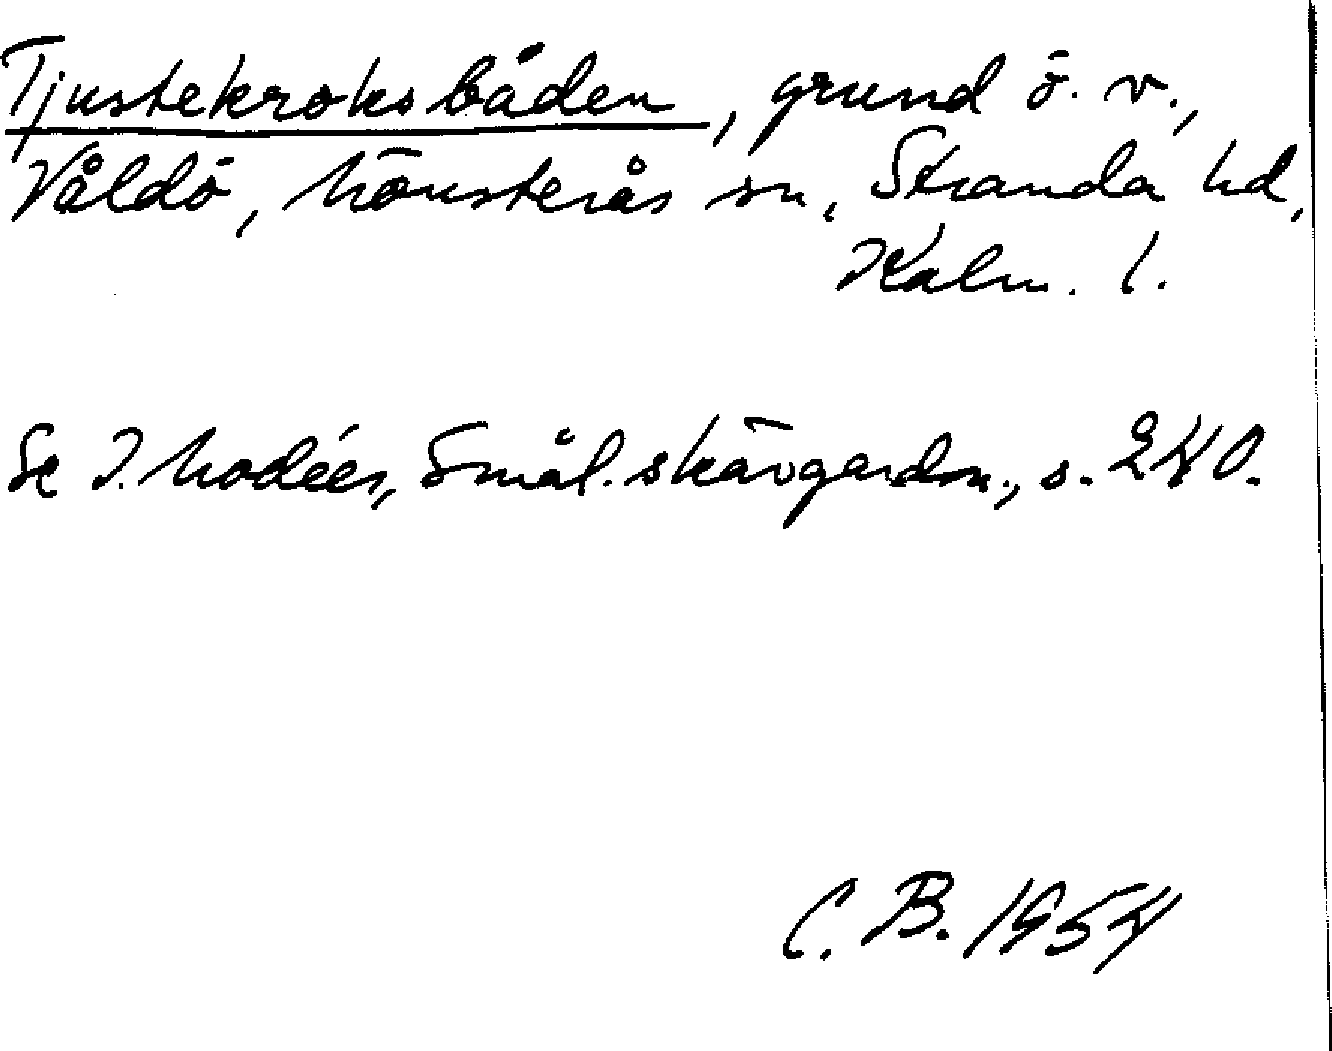 Tjustekroksbåden, grund ö. v.,
Våldö, Mönsterås sn, Stranda hd,
Kalm. l.
Se I. Modéer, Smål. skärgårdsn., s. 240.
C. B. 1954